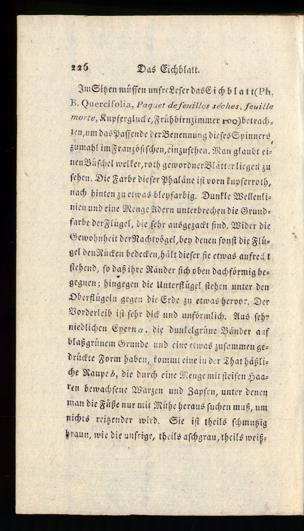 226 Das Eichblatt.
Im Sitzen müssen unsre Leser das Eichblatt (Ph.
B. Quercifolia, Paquet de feuilles séches, feuille
morte, Kupferglucke, Frühbirnzimmer 100) betrach-
ten, um das Passende der Benennung dieses Spinners,
zumahl im Französischen, einzusehen. Man glaubt ei-
nen Büschel welker, roth gewordner Blätter liegen zu
sehen. Die Farbe dieser Phaläne ist vorn kupferroth,
nach hinten zu etwas bleyfarbig. Dunkle Wellenli-
nien und eine Menge Adern unterbrechen die Grund-
farbe der Flügel, die sehr ausgezackt sind. Wider die
Gewohnheit der Nachtvögel, bey denen sonst die Flü-
gel den Rücken bedecken, hält dieser sie etwas aufrecht
stehend, so daß ihre Ränder sich oben dachförmig be-
gegnen; hingegen die Unterflügel stehen unter den
Oberflügeln gegen die Erde zu etwas hervor. Der
Vorderleib ist sehr dick und unförmlich. Aus sehr
niedlichen Eyern a, die dunkelgrüne Bänder auf
blaßgrünem Grunde und eine etwas zusammen ge-
drückte Form haben, kommt eine in der That häßli-
che Raupe b, die durch eine Menge mit steifen Haa-
ren bewachsene Warzen und Zapfen, unter denen
man die Füße nur mit Mühe heraus suchen muß, um
nichts reitzender wird. Sie ist theils schmutzig
braun, wie die unsrige, theils aschgrau, theils weiß-